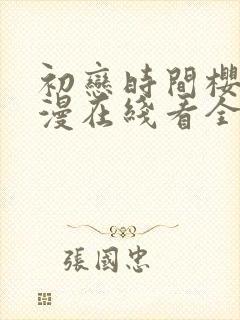 初戀時間櫻
漫在綫看全
張國忠